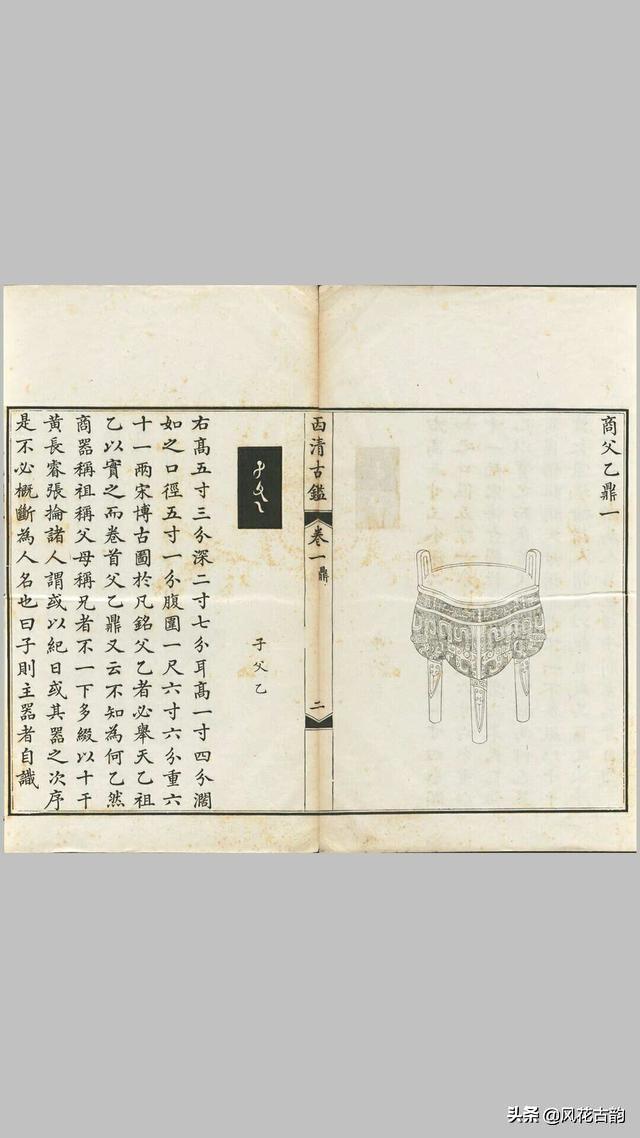 商父乙鼎一
西清古鑑 卷一 鼎 二
子父乙
右高五寸三分深二寸七分耳高一寸四分濶
如之口徑五寸一分腹圍一尺六寸六分重六
十一兩宋博古圖於凡銘父乙者必舉天乙祖
乙以實之而卷首父乙鼎又云不知為何乙然
商器稱祖稱父母稱兄者不一下多綴以十干
黃長睿張掄諸人謂或以紀日或其器之次序
是不必概斷為人名也曰子則主器者自識
头条 @风花古韵